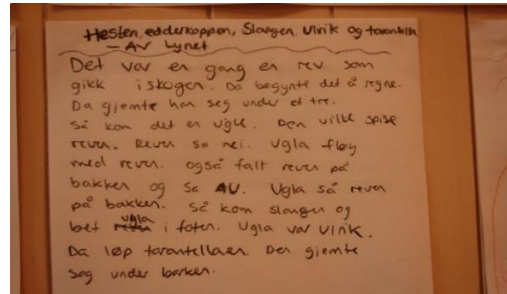 Hesten, edderkoppen, Slangen, Ulrik og tarantella
- AV Lynet
Det var en gang en rev som
gikk i skogen. Da begynte det å regne.
Da gjemte han seg under et tre.
Så kom det en ugle. Den ville spise
reven. Reven sa nei. Ugla fløy
med reven. også falt reven på
bakken og sa AU. Ugla så reven
på bakken. Så kom slangen og
bet ugla i foten. Ugla var Ulrik.
Da løp tarantellaen. Den gjemte
seg under barken.